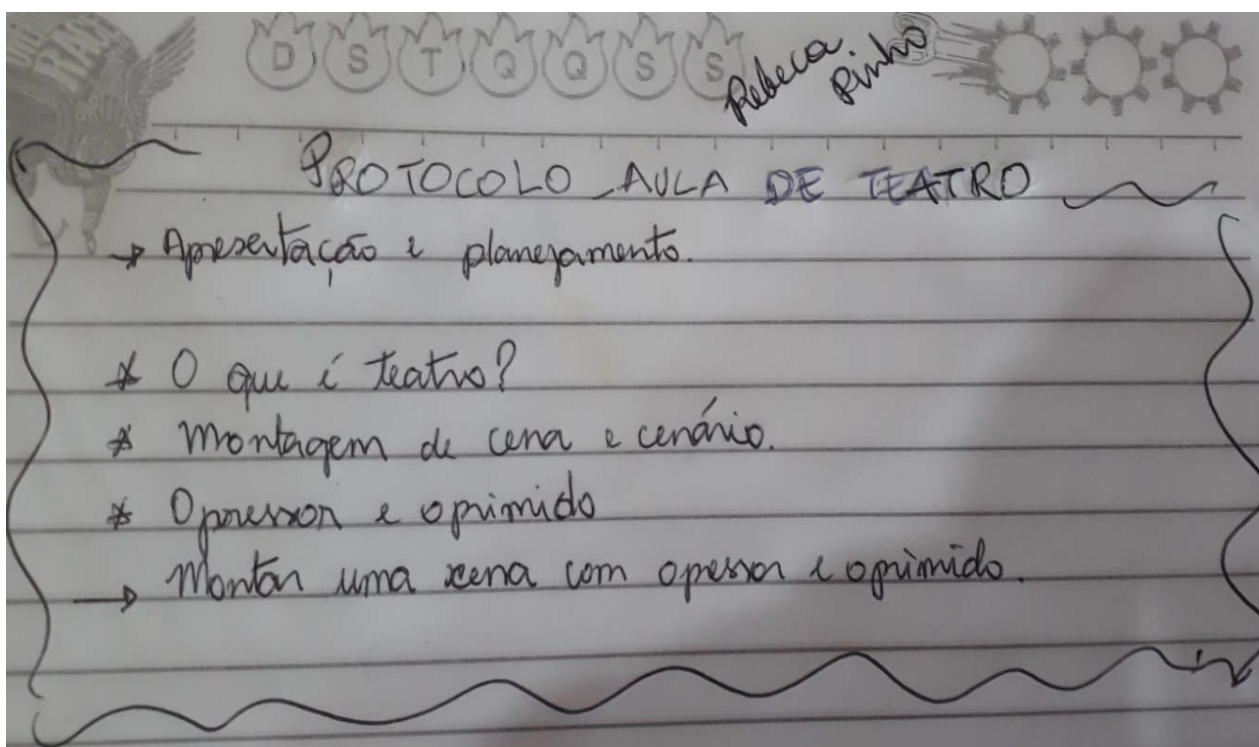 D S T Q Q S S
Rebeca.
Pinho
PROTOCOLO AULA DE TEATRO
→ Apresentação e planejamento.
* O que é teatro?
* Montagem de cena e cenário.
* Opressor e oprimido
→ Montar uma xena com opessor e oprimido.